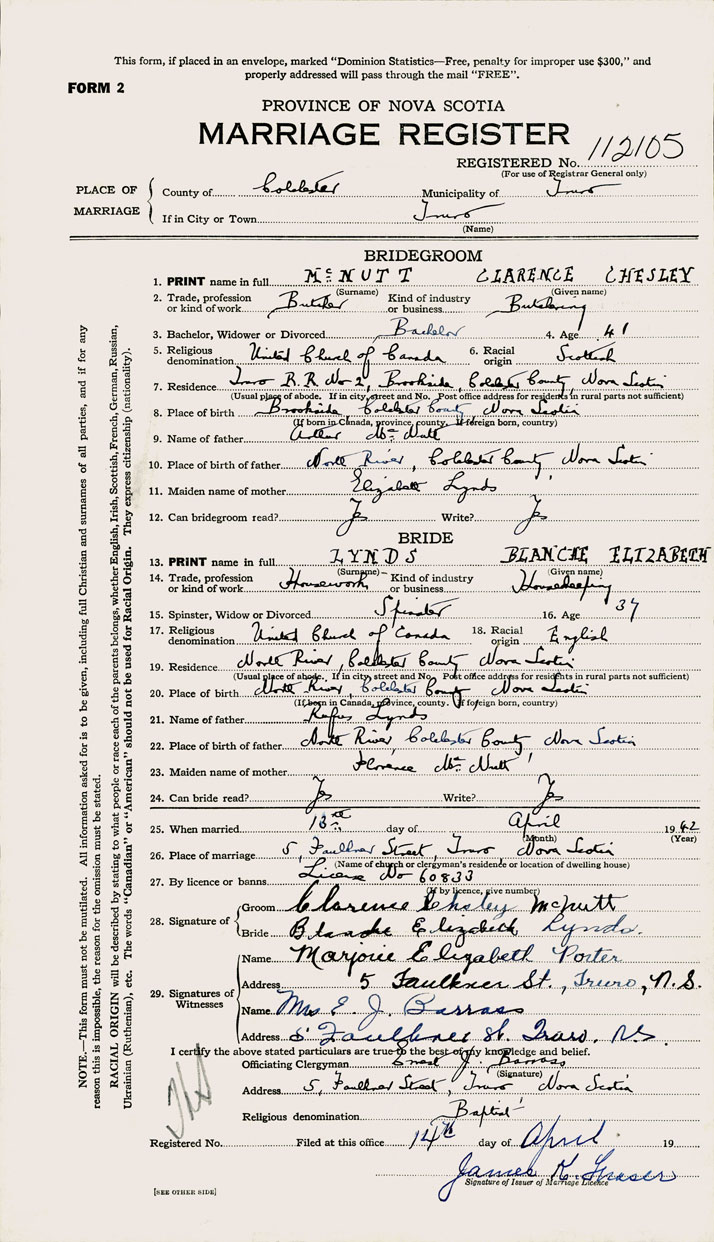 This form, if placed in an envelope, marked "Dominion Statistics—Free, penalty for improper use $300," and
properly addressed will pass through the mail "FREE".
FORM 2
PROVINCE OF NOVA SCOTIA
MARRIAGE REGISTER
REGISTERED No. 112105
(For use of Registrar General only)
PLACE OF MARRIAGE
County of Colchester Municipality of Truro
If in City or Town Truro
(Name)
BRIDEGROOM
1. PRINT name in full McNUTT CLARENCE CHESLEY
(Surname) (Given name)
2. Trade, profession or kind of work Butcher Kind of industry or business Butchering
3. Bachelor, Widower or Divorced Bachelor 4. Age 41
5. Religious denomination United Church of Canada 6. Racial origin Scottish
7. Residence Truro R.R. No 2, Brookside, Colchester County, Nova Scotia
(Usual place of abode. If in city, street and No. Post office address for residents in rural parts not sufficient)
8. Place of birth Brookside, Colchester County, Nova Scotia
(If born in Canada, province, county. If foreign born, country)
9. Name of father Arthur McNutt
10. Place of birth of father North River, Colchester County, Nova Scotia
11. Maiden name of mother Elizabeth Lynds
12. Can bridegroom read? Yes Write? Yes
BRIDE
13. PRINT name in full LYNDS BLANCHE ELIZABETH
(Surname) (Given name)
14. Trade, profession or kind of work Housework Kind of industry or business Housekeeping
15. Spinster, Widow or Divorced Spinster 16. Age 37
17. Religious denomination United Church of Canada 18. Racial origin English
19. Residence North River, Colchester County Nova Scotia
(Usual place of abode. If in city, street and No. Post office address for residents in rural parts not sufficient)
20. Place of birth North River, Colchester County Nova Scotia
(If born in Canada, province, county. If foreign born, country)
21. Name of father Rufus Lynds
22. Place of birth of father North River, Colchester County, Nova Scotia
23. Maiden name of mother Florence McNutt
24. Can bride read? Yes Write? Yes
25. When married 13th day of April 1942
(Month) (Year)
26. Place of marriage 5, Faulkner Street, Truro Nova Scotia
(Name of church or clergyman's residence or location of dwelling house)
27. By licence or banns License No 60833
(If by licence, give number)
28. Signature of
Groom Clarence Chesley McNutt
Bride Blanche Elizabeth Lynds.
29. Signatures of Witnesses
Name Marjorie Elizabeth Porter
Address 5 Faulkner St., Truro, N.S.
Name Mrs E. J. Barrass
Address 5 Faulkner St. Truro, N.S.
I certify the above stated particulars are true to the best of my knowledge and belief.
Officiating Clergyman Ernest J. Barrass
(Signature)
Address 5, Faulkner Street, Truro Nova Scotia
Religious denomination Baptist
Registered No. Filed at this office 14th day of April 19
James K. Fraser
Signature of Issuer of Marriage Licence
[SEE OTHER SIDE]
NOTE.—This form must not be mutilated. All information asked for is to be given, including full Christian and surnames of all parties, and if for any
reason this is impossible, the reason for the omission must be stated.
RACIAL ORIGIN will be described by stating to what people or race each of the parents belongs, whether English, Irish, Scottish, French, German, Russian,
Ukrainian (Ruthenian), etc. The words "Canadian" or "American" should not be used for Racial Origin. They express citizenship (nationality).